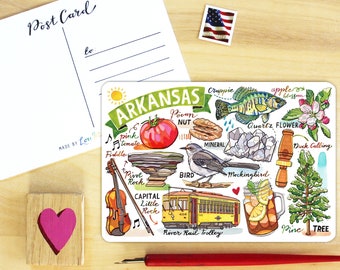 Post Card
to
MADE BY
ARKANSAS
Crappie
apple
blossom
Pecan
NUT
pink
tomato
Quartz
MINERAL
FLOWER
Duck Calling
Fiddle
Pivot
Rock
BIRD
Mockingbird
CAPITAL
Little
Rock
River Rail Trolley
Pine
TREE